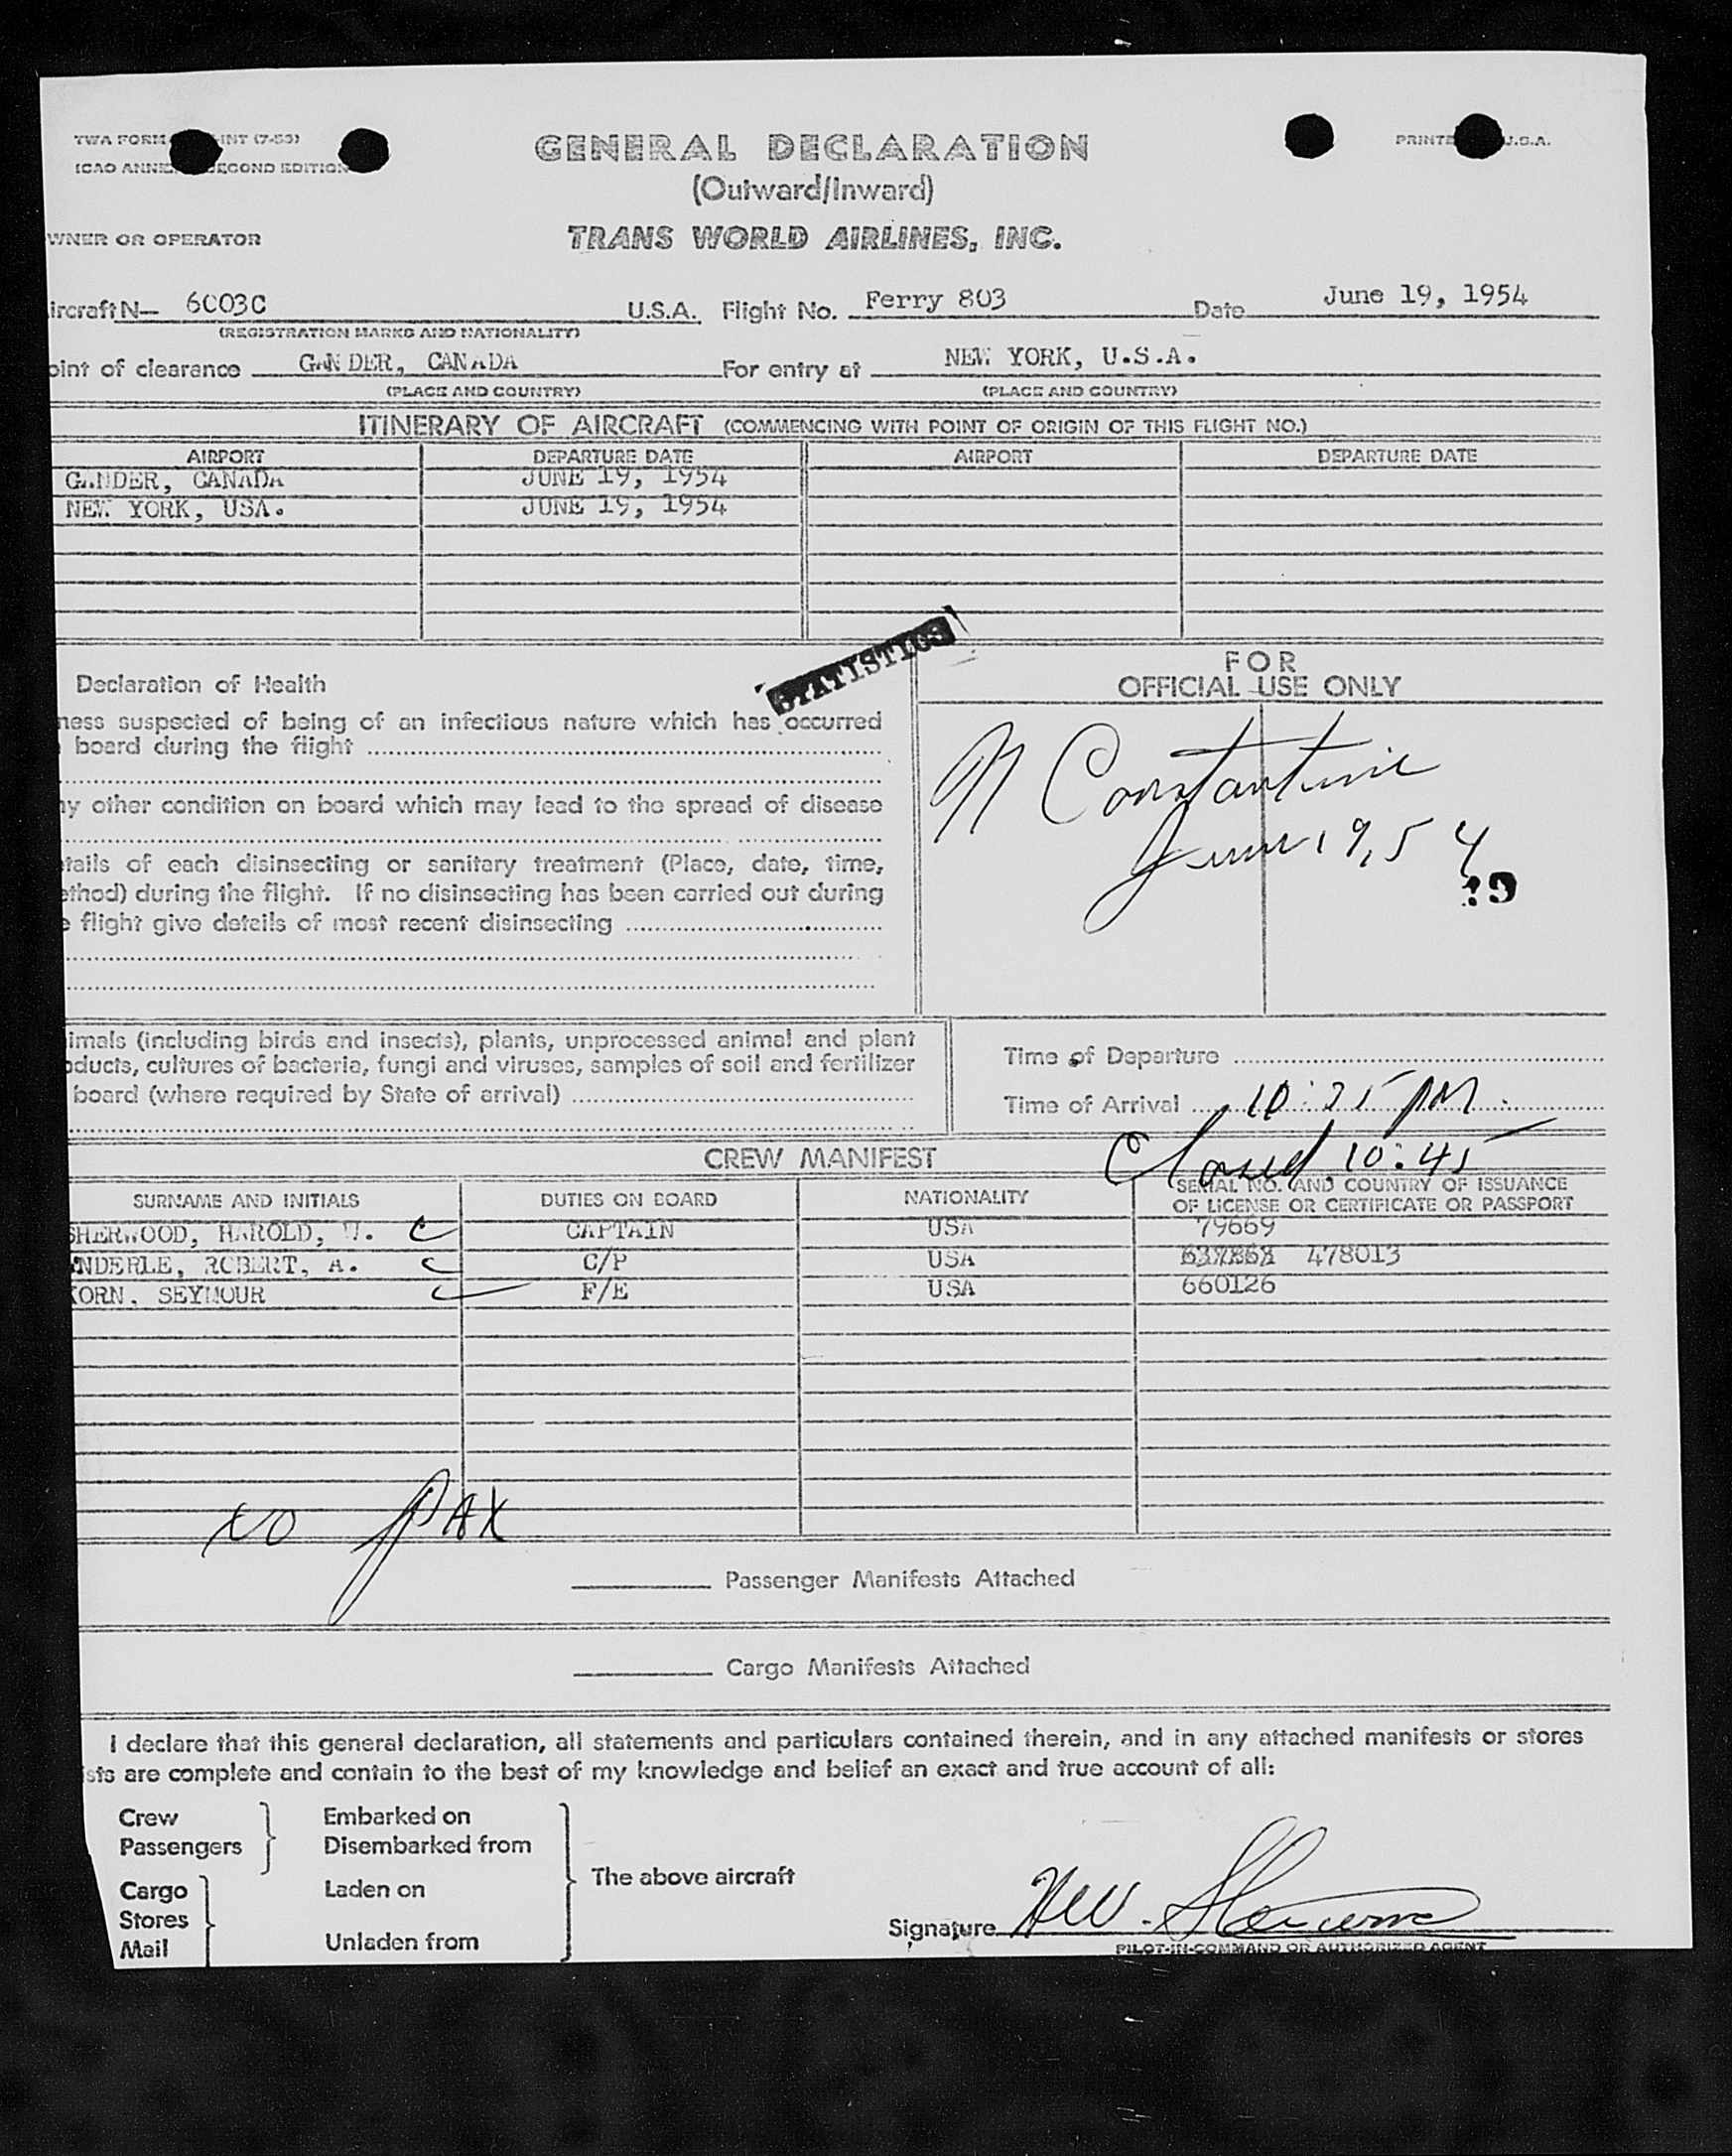 TWA FORM INT (7-53)
ICAO ANNEX SECOND EDITION
GENERAL DECLARATION
(Outward/Inward)
PRINTED U.S.A.
WNER OR OPERATOR TRANS WORLD AIRLINES, INC.
ircraft N— 6003C U.S.A. Flight No. Ferry 803 Date June 19, 1954
(REGISTRATION MARKS AND NATIONALITY)
oint of clearance GANDER, CANADA For entry at NEW YORK, U.S.A.
(PLACE AND COUNTRY) (PLACE AND COUNTRY)
ITINERARY OF AIRCRAFT (COMMENCING WITH POINT OF ORIGIN OF THIS FLIGHT NO.)
AIRPORT DEPARTURE DATE AIRPORT DEPARTURE DATE
GANDER, CANADA JUNE 19, 1954
NEW YORK, USA. JUNE 19, 1954
STATISTICS
Declaration of Health
ness suspected of being of an infectious nature which has occurred
board during the flight
ny other condition on board which may lead to the spread of disease
tails of each disinsecting or sanitary treatment (Place, date, time,
ethod) during the flight. If no disinsecting has been carried out during
e flight give details of most recent disinsecting
FOR
OFFICIAL USE ONLY
N Constantine
June 19, 54
19
imals (including birds and insects), plants, unprocessed animal and plant
oducts, cultures of bacteria, fungi and viruses, samples of soil and fertilizer
board (where required by State of arrival)
Time of Departure
Time of Arrival 10:25 PM
Closed 10:45
CREW MANIFEST
SURNAME AND INITIALS DUTIES ON BOARD NATIONALITY SERIAL NO. AND COUNTRY OF ISSUANCE
OF LICENSE OR CERTIFICATE OR PASSPORT
SHERWOOD, HAROLD, W. CAPTAIN USA 79669
NDERLE, ROBERT, A. C/P USA 478013
KORN, SEYMOUR F/E USA 660126
no PAX
Passenger Manifests Attached
Cargo Manifests Attached
I declare that this general declaration, all statements and particulars contained therein, and in any attached manifests or stores
sts are complete and contain to the best of my knowledge and belief an exact and true account of all:
Crew Embarked on
Passengers Disembarked from
The above aircraft
Cargo Laden on
Stores
Mail Unladen from
Signature HW. Sherwood
PILOT-IN-COMMAND OR AUTHORIZED AGENT